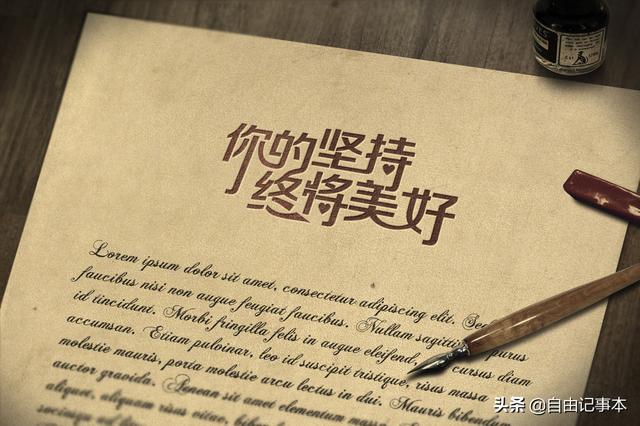 你的坚持
终将美好
Lorem ipsum dolor sit amet, consectetur adipiscing elit. Sed
faucibus nisi non augue feugiat faucibus. Nullam sagittis purus
id tincidunt. Morbi fringilla felis in augue eleifend, cursus diam
accumsan. Etiam pulvinar, leo id suscipit tristique, risus massa
molestie mauris, porta molestie arcu lectus in dui. Mauris bibendum
auctor gravida. Aenean sit amet elementum massa
aliquet, aliquam risus vitae,
头条 @自由记事本